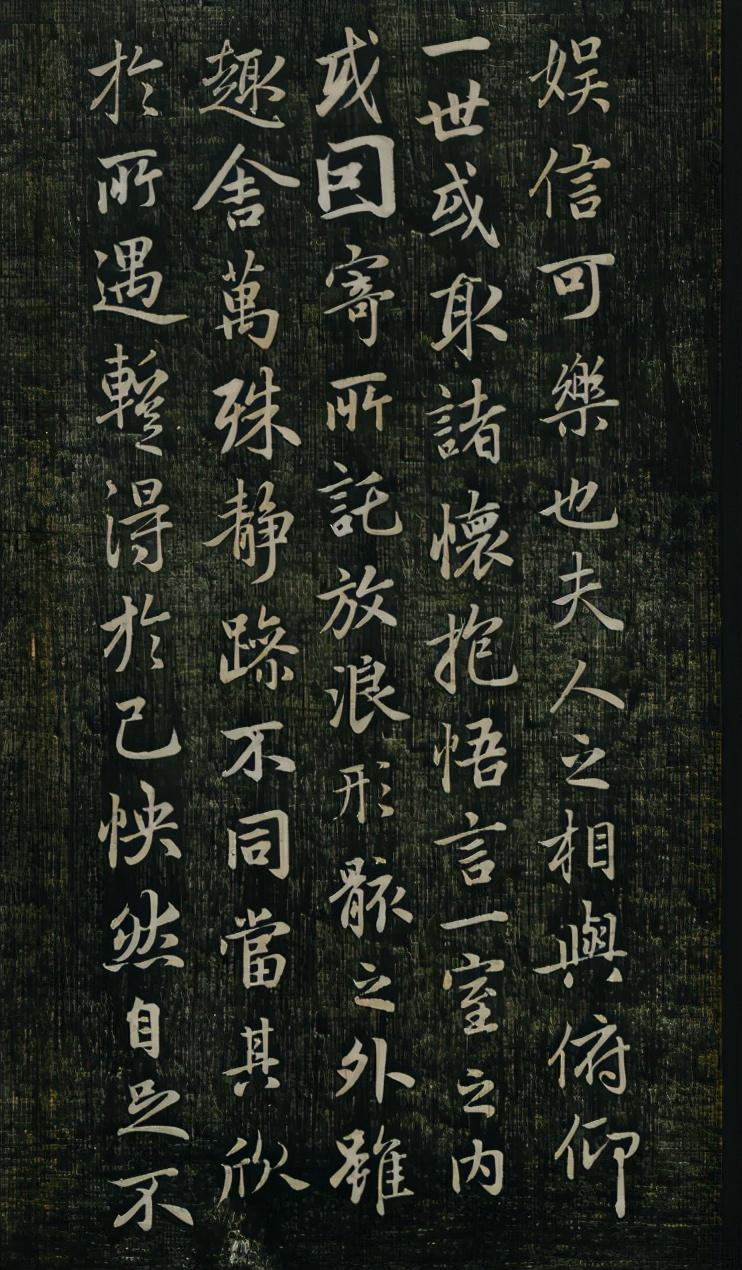 娛信可樂也夫人之相與俯仰
一世或取諸懷抱悟言一室之内
或因寄所託放浪形骸之外雖
趣舍萬殊静躁不同當其欣
於所遇暫得於己怏然自足不